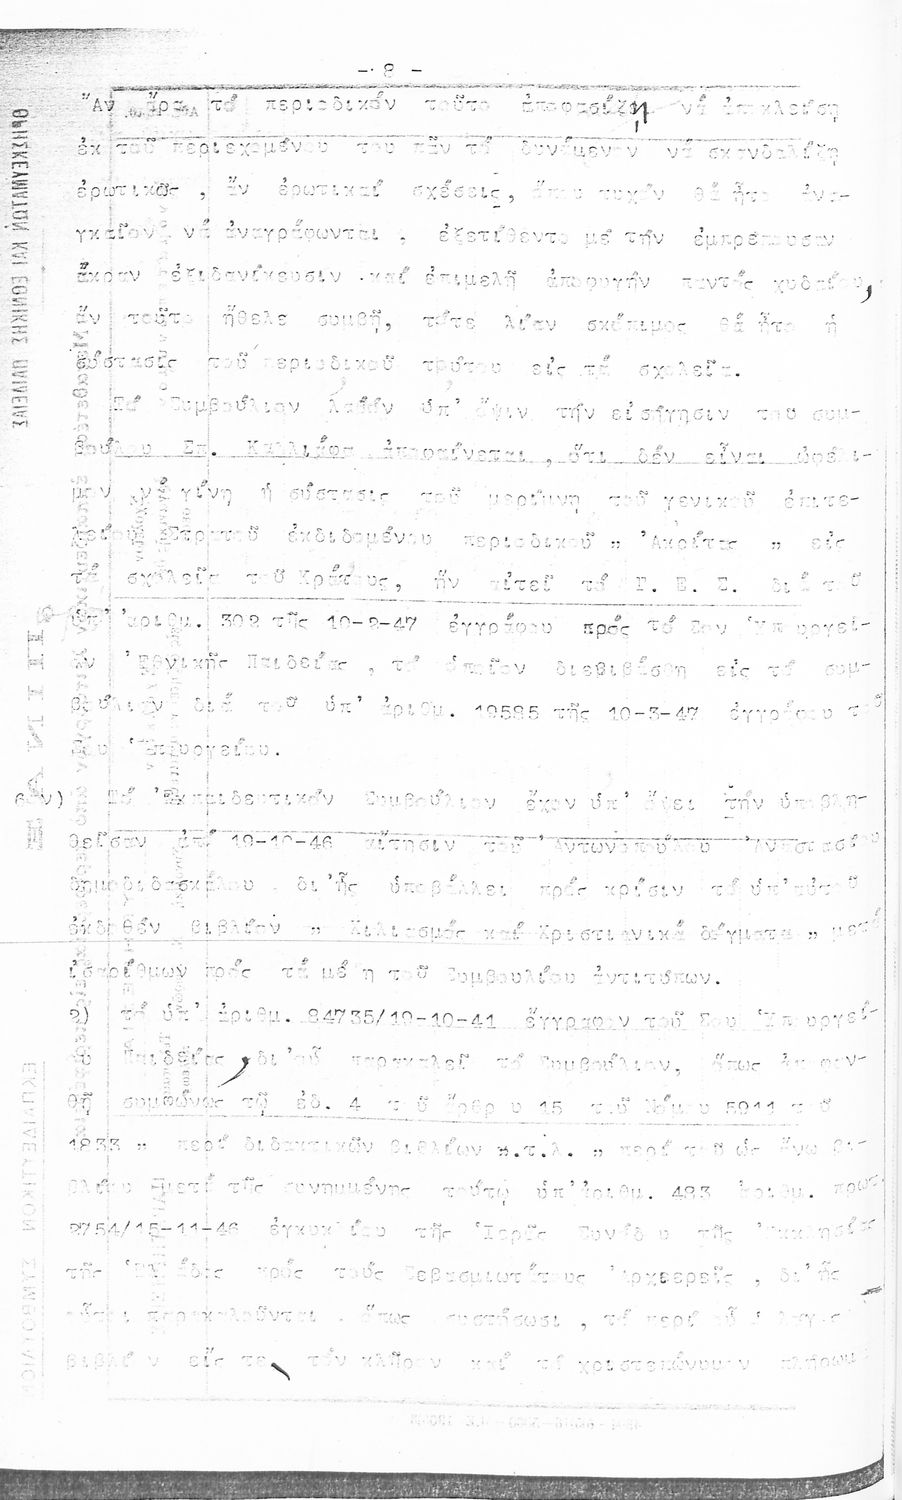 - 8 -
Ἄν ἄρα τό περιοδικόν τοῦτο ἀποφασίζῃ νά ἀποκλείσῃ
ἐκ τοῦ περιεχομένου του πᾶν τό δυνάμενον νά σκανδαλίζῃ
ἐρωτικῶς , ἄν ἐρωτικαί σχέσεις, ὅπου τυχόν θά ἦτο ἀνα-
γκαῖον νά ἀναγράφωνται , ἐξετίθεντο μέ τήν ἐμπρέπουσαν
ἄκραν ἐξιδανίκευσιν καί ἐπιμελῆ ἀποφυγήν παντός χυδαίου,
ἄν τοῦτο ἤθελε συμβῆ, τότε λίαν σκόπιμος θά ἦτο ἡ
σύστασις τοῦ περιοδικοῦ τούτου είς τά σχολεῖα.
Τό Συμβούλιον λαβόν ὑπ' ὄψιν τήν εἰσήγησιν του συμ-
βούλου Σπ. Καλλιάφα ἀποφαίνεται , ὅτι δέν εἶναι ὠφέλι-
μον νά γίνῃ ἡ σύστασις τοῦ μερίμνῃ τοῦ γενικοῦ ἐπιτε-
λείου Στρατοῦ ἐκδιδομένου περιοδικοῦ " Ἀκρίτας " εἰς
τά σχολεῖα τοῦ Κράτους, ἥν αἰτεῖ τό Γ. Ε. Σ. διά τοῦ
ὑπ' ἀριθμ. 302 τῆς 10-2-47 ἐγγράφου πρός τό Σον Ὑπουργεῖ-
ον Ἐθνικῆς Παιδείας , τό ὁποῖον διεβιβάσθη είς τό συμ-
βούλιον διά τοῦ ὑπ' ἀριθμ. 19585 τῆς 10-3-47 ἐγγράφου τοῦ
Σου Ὑπουργείου.
6ον) Τό Ἐκπαιδευτικόν Συμβούλιον ἔχον ὑπ' ὄψει τήν ὑποβλη-
θεῖσαν ἀπό 19-10-46 αἴτησιν τοῦ Ἀντωνοπούλου Ἀναστασίου
δημοδιδασκάλου δι' ἧς ὑποβάλλει πρός κρίσιν τό ὑπ' αὐτοῦ
ἐκδοθέν βιβλίον " Χιλιασμός καί Χριστιανικά δόγματα " μετά
ἰσαρίθμων πρός τά μέλη τοῦ Συμβουλίου ἀντιτύπων.
2) τό ὑπ' ἀριθμ. 84735/19-10-41 ἔγγραφον τοῦ Σου Ὑπουργεί-
ου Παιδείας , δι' οὗ παρακαλεῖ τό Συμβούλιον, ὅπως ἀποφαν-
θῇ συμφώνως τῷ ἐδ. 4 τοῦ ἄρθρου 15 τοῦ Νόμου 5911 τοῦ
1933 " περί διδακτικῶν βιβλίων κ.τ.λ. " περί τοῦ ὡς ἄνω βι-
βλίου μετά τῆς συνημμένης τούτῳ ὑπ' ἀριθμ. 483 ἀριθμ. πρωτ.
2754/15-11-46 ἐγκυκλίου τῆς Ἱερᾶς Συνόδου τῆς Ἐκκλησίας
τῆς Ἑλλάδος πρός τούς Σεβασμιωτάτους Ἀρχιερεῖς , δι' ἧς
οὗτοι παρακαλοῦνται ὅπως συστήσωσι , τό περί οὗ ὁ λόγος
βιβλίον εἴς τε τόν κλῆρον καί τό χριστεπώνυμον πλήρωμα
ΘΡΗΣΚΕΥΜΑΤΩΝ ΚΑΙ ΕΘΝΙΚΗΣ ΠΑΙΔΕΙΑΣ
ΕΚΠΑΙΔΕΥΤΙΚΟΝ ΣΥΜΒΟΥΛΙΟΝ